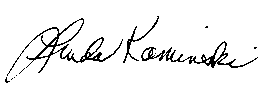 Linda Kaminski